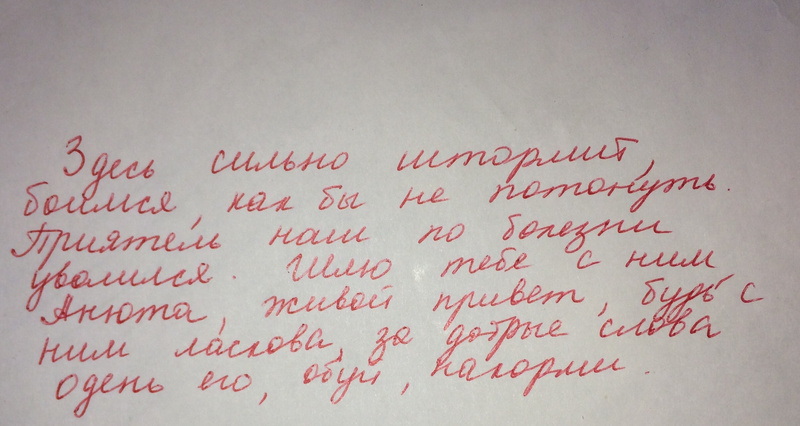 Здесь сильно штормит,
боимся, как бы не потонуть.
Приятель наш по болезни
уволился. Шлю тебе с ним
Анюта, живой привет, будь с
ним ласкова, за добрые слова
одень его, обуй, накорми.